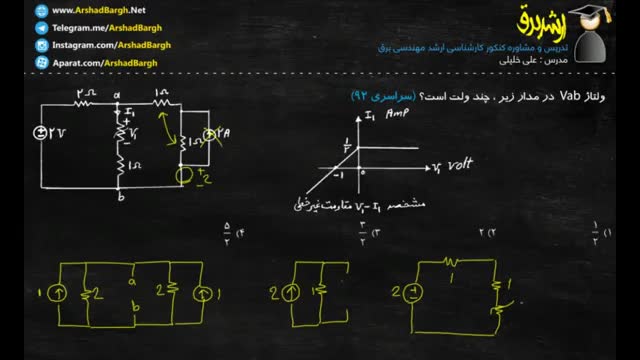 www.ArshadBargh.Net
Telegram.me/ArshadBargh
Instagram.com/ArshadBargh
Aparat.com/ArshadBargh
ارشد برق
تدریس و مشاوره کنکور کارشناسی ارشد مهندسی برق
مدرس : علی خلیلی
ولتاژ Vab در مدار زیر ، چند ولت است؟ (سراسری ۹۲)
۲Ω a ۱Ω
I₁
+ V₁ -
۲V
۱Ω ۲A
۱Ω
+ - 2
b
I₁ Amp
1/2
-1 0 V₁ volt
مشخصه V₁-I₁ مقاومت غیرخطی
۱) ۱/۲
۲) ۲
۳) ۳/۲
۴) ۵/۲
1 2 a b 2 1
2 1
2 + - 1 1